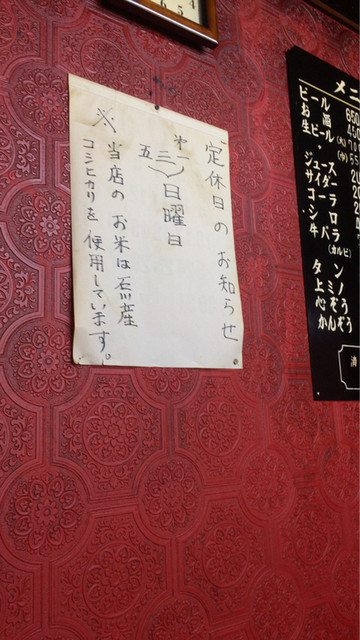 定休日のお知らせ
第一
三
五
日曜日
※
当店のお米は石川産
コシヒカリを使用しています。
メニ
ビール 650
お酒
生ビール(大)
(中)
ジュース
サイダー
コーラ
シロ
牛バラ
(カルビ)
タン
上ミノ
心ぞう
かんぞう